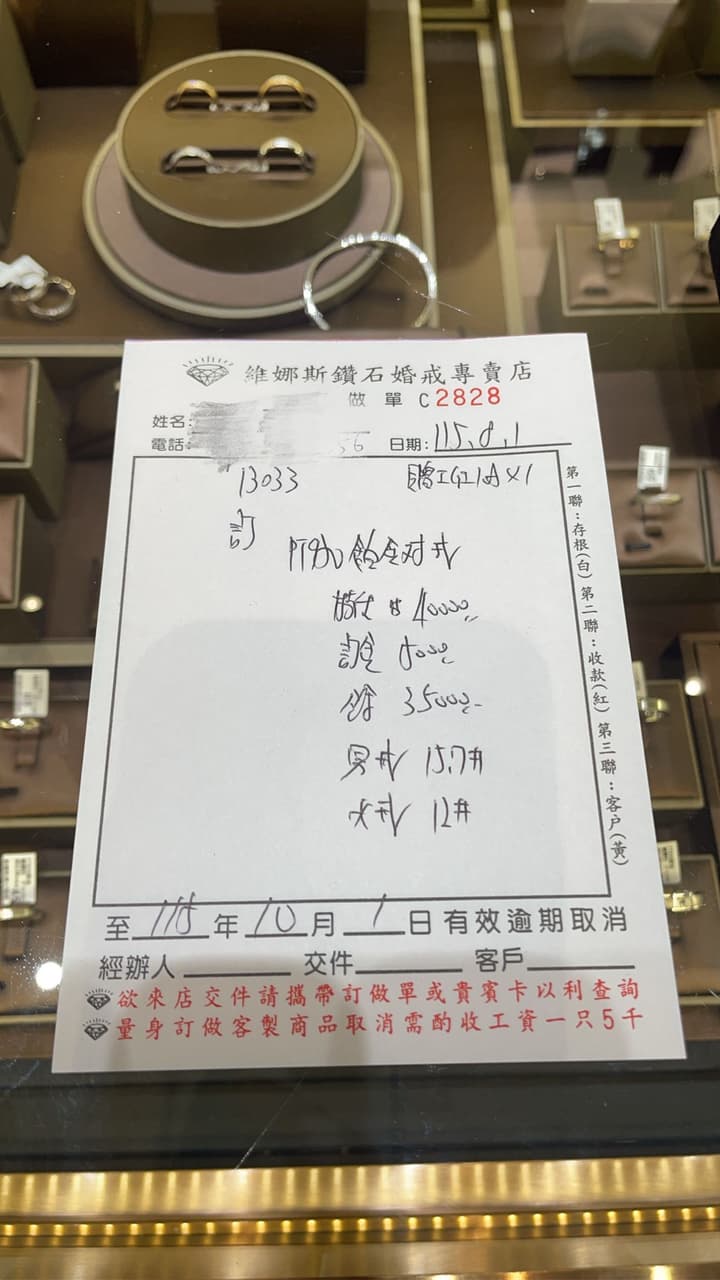 維娜斯鑽石婚戒專賣店
做單 C2828
姓名:
電話: 56 日期: 115.8.1
13033
訂
鉑金对戒
$40000
訂金 5000
餘 35000
男戒 15.7#
女戒 12#
第一聯:存根(白) 第二聯:收款(紅) 第三聯:客戶(黃)
至 115 年 10 月 1 日有效逾期取消
經辦人 交件 客戶
欲來店交件請攜帶訂做單或貴賓卡以利查詢
量身訂做客製商品取消需酌收工資一只5千